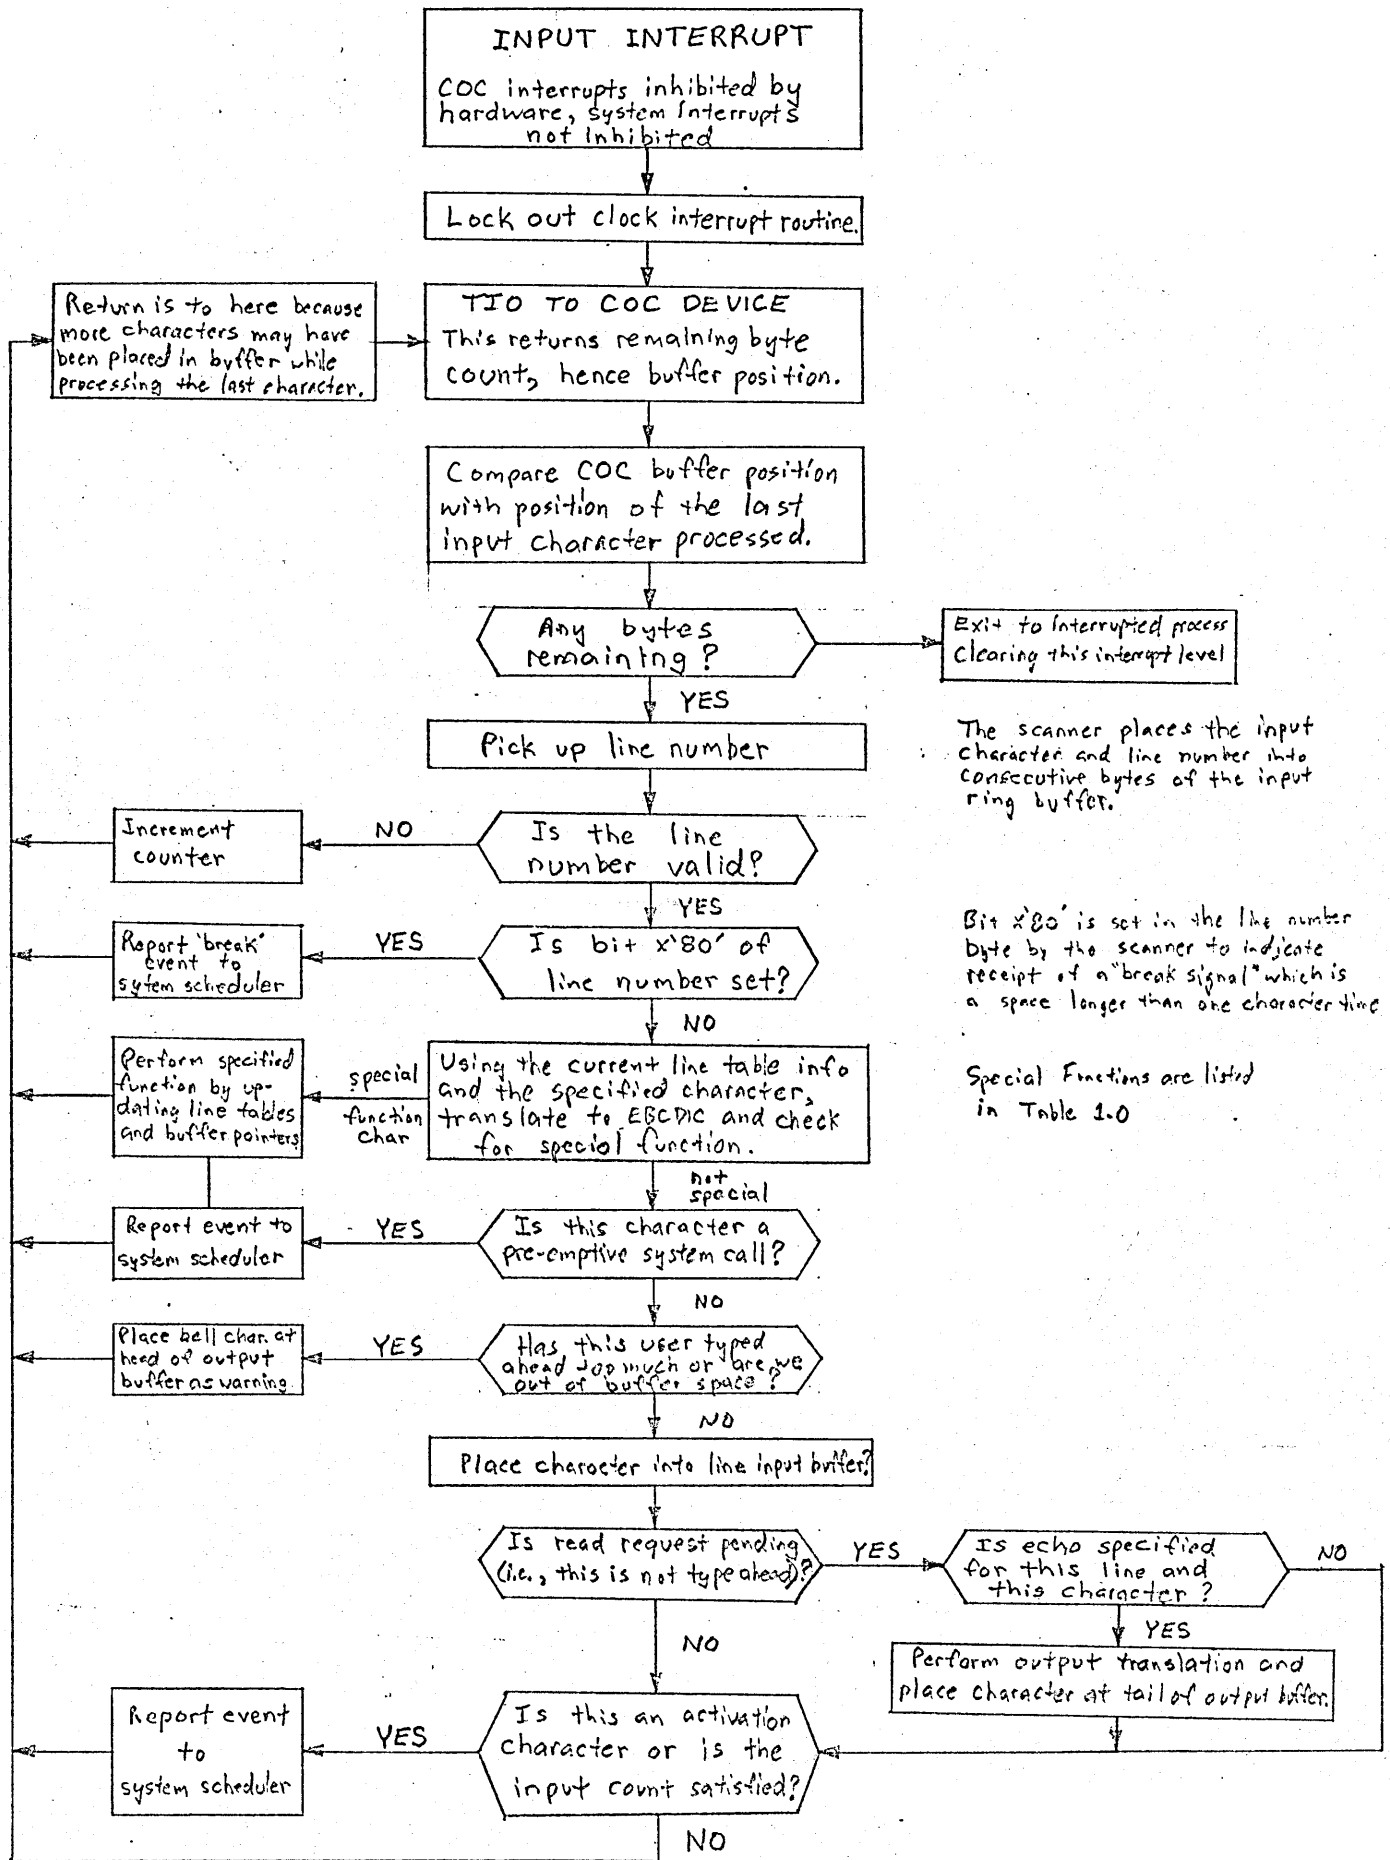 INPUT INTERRUPT
COC interrupts inhibited by
hardware, system Interrupts
not Inhibited
Lock out clock interrupt routine.
Return is to here because
more characters may have
been placed in buffer while
processing the last character.
TIO TO COC DEVICE
This returns remaining byte
count, hence buffer position.
Compare COC buffer position
with position of the last
input character processed.
Any bytes
remaining?
Exit to Interrupted process
Clearing this interrupt level
YES
Pick up line number
The scanner places the input
Character and line number into
Consecutive bytes of the input
ring buffer.
Increment
counter
NO
Is the line
number valid?
YES
Report 'break'
event to
sytem scheduler
YES
Is bit x'80' of
line number set?
Bit x'80' is set in the line number
byte by the scanner to indicate
receipt of a "break signal" which is
a space longer than one character time
NO
Perform specified
function by up-
dating line tables
and buffer pointers
special
function
char
Using the current line table info
and the specified character,
translate to EBCDIC and check
for special function.
Special Functions are listed
in Table 1.0
not
special
Report event to
system scheduler
YES
Is this character a
pre-emptive system call?
NO
Place bell char. at
head of output
buffer as warning.
YES
Has this user typed
ahead too much or are we
out of buffer space?
NO
Place character into line input buffer?
Is read request pending
(i.e., this is not type ahead)?
YES
Is echo specified
for this line and
this character?
NO
YES
NO
Perform output translation and
place character at tail of output buffer.
Report event
to
system scheduler
YES
Is this an activation
character or is the
input count satisfied?
NO